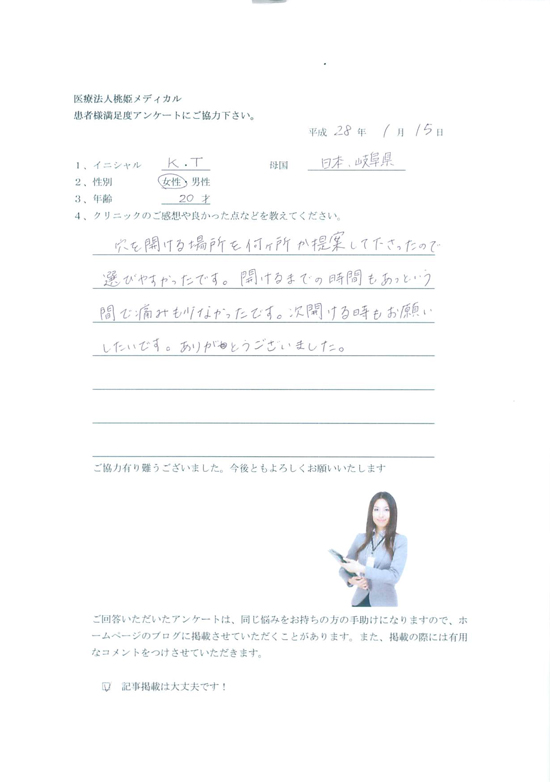 医療法人桃姫メディカル
患者様満足度アンケートにご協力下さい。
平成 28 年 1 月 15 日
1、イニシャル K.T 母国 日本、岐阜県
2、性別 女性・男性
3、年齢 20才
4、クリニックのご感想や良かった点などを教えてください。
穴を開ける場所を何ヶ所か提案して下さったので
選びやすかったです。開けるまでの時間もあっという
間で痛みも少なかったです。次開ける時もお願い
したいです。ありがとうございました。
ご協力有り難うございました。今後ともよろしくお願いいたします
ご回答いただいたアンケートは、同じ悩みをお持ちの方の手助けになりますので、ホ
ームページのブログに掲載させていただくことがあります。また、掲載の際には有用
なコメントをつけさせていただきます。
記事掲載は大丈夫です！